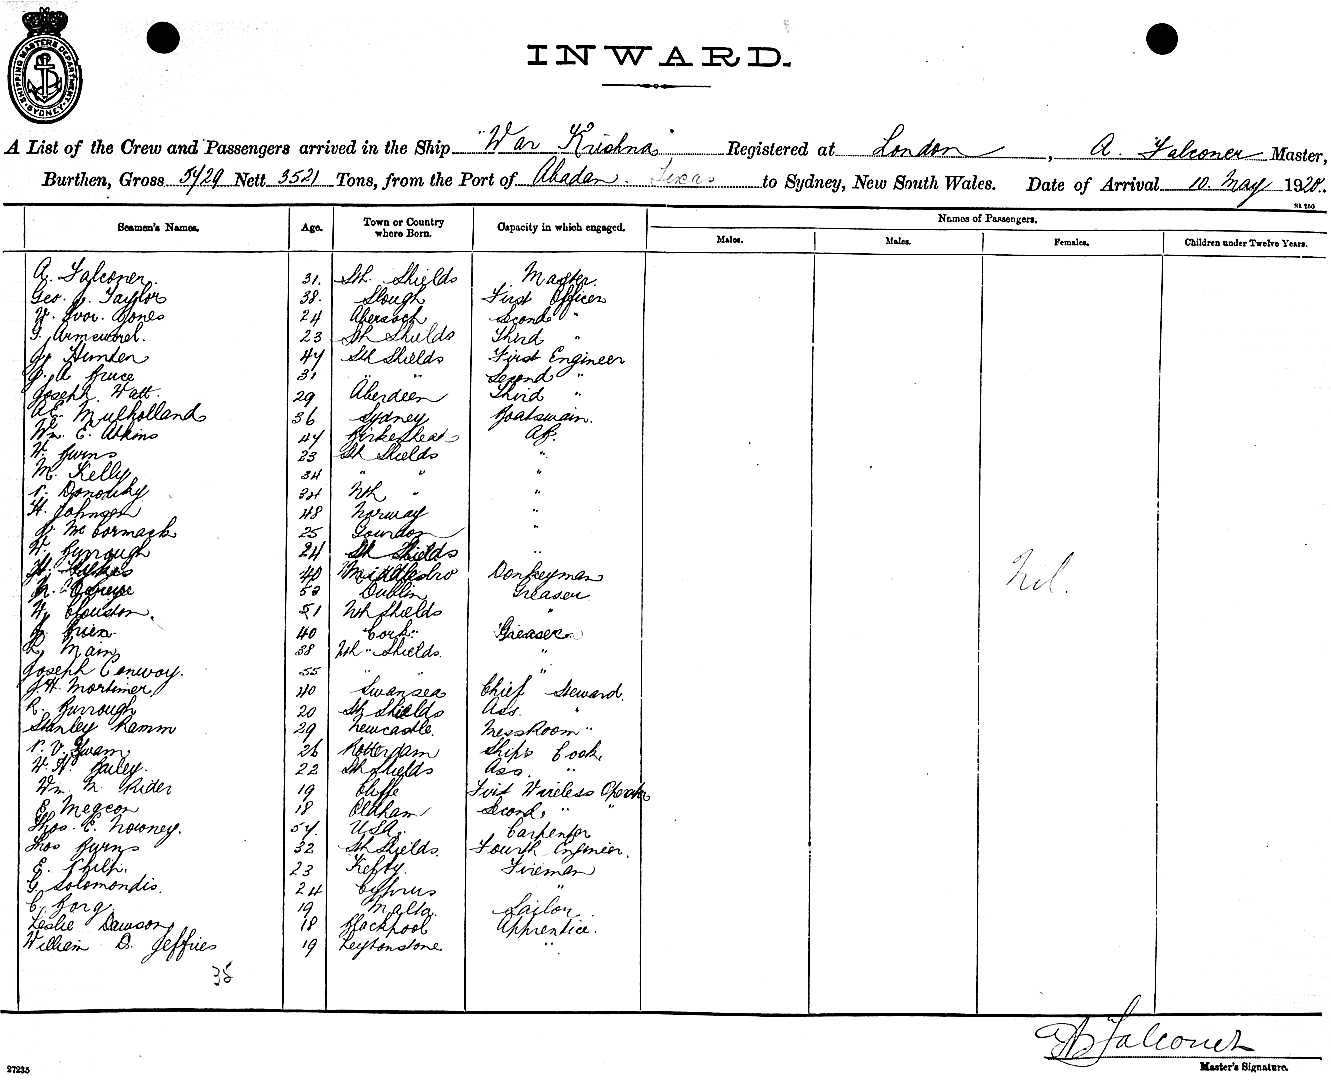 SHIPPING MASTERS DEPARTMENT SYDNEY
INWARD.
A List of the Crew and Passengers arrived in the Ship "War Krishna" Registered at London, A. Falconer Master,
Burthen, Gross 5429 Nett 3521 Tons, from the Port of Abadan. Texas to Sydney, New South Wales. Date of Arrival 10. May 1920.
Seamen's Names. Age. Town or Country where Born. Capacity in which engaged. Names of Passengers.
Males. Males. Females. Children under Twelve Years.
A. Falconer. 31. Sth. Shields Master.
Geo. J. Taylor 38. Slough First Officer
W. Ivor. Jones 24 Abersoch Second "
23 Sth Shields Third "
J. Hunter 44 Sth Shields First Engineer
J. A Bruce 31 " " Second "
Joseph Watt. 29 Aberdeen Third "
Mulholland 36 Sydney Boatswain.
Wm. E. Atkins 44 Birkenhead AB.
W. Burns 23 Sth Shields "
M. Kelly 34 " " "
P. Donoughy 34 Nth " "
H. Johnsen 48 Norway "
J. McCormack 25 Gourdon "
W. Burrough 24 Sth Shields "
40 Middlesbro Donkeyman
52 Dublin Greaser
W. Clouston. 51 Nth Shields "
J. Brien. 40 Cork " Greaser
Main 38 Nth " Shields. "
Joseph Conwoy. 55 " " "
J. H. Mortimer, 40 Swansea Chief Steward.
R. Burrough 20 Sth Shields Ass. "
Stanley Ramm 29 Newcastle. MessRoom "
P. V. Zwam, 26 Rotterdam Ships Cook,
W. H. Bailey. 22 Sth Shields Ass. "
Wm. N. Rider 19 Cliffe First Wireless Operator
E. Megson 18 Oldham Second, " "
Thos. E. Nowney. 54. USA. Carpenter
Thos Burns 32 Sth Shields. Fourth Engineer.
E. Philp. 23 Fireman
G. Solomondis. 24 Cyprus "
C. Borg 19 Malta. Sailor.
Leslie Dawson, 18 Blackpool Apprentice.
William D. Jeffries 19 Leytonstone. "
Nil.
35
A Falconer
Master's Signature.
27235